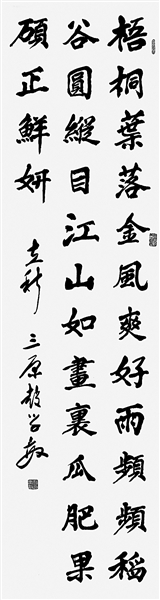 梧桐葉落金風爽好雨頻頻稻
谷圓縱目江山如畫裏瓜肥果
碩正鮮妍 立秋 三原趙学敏